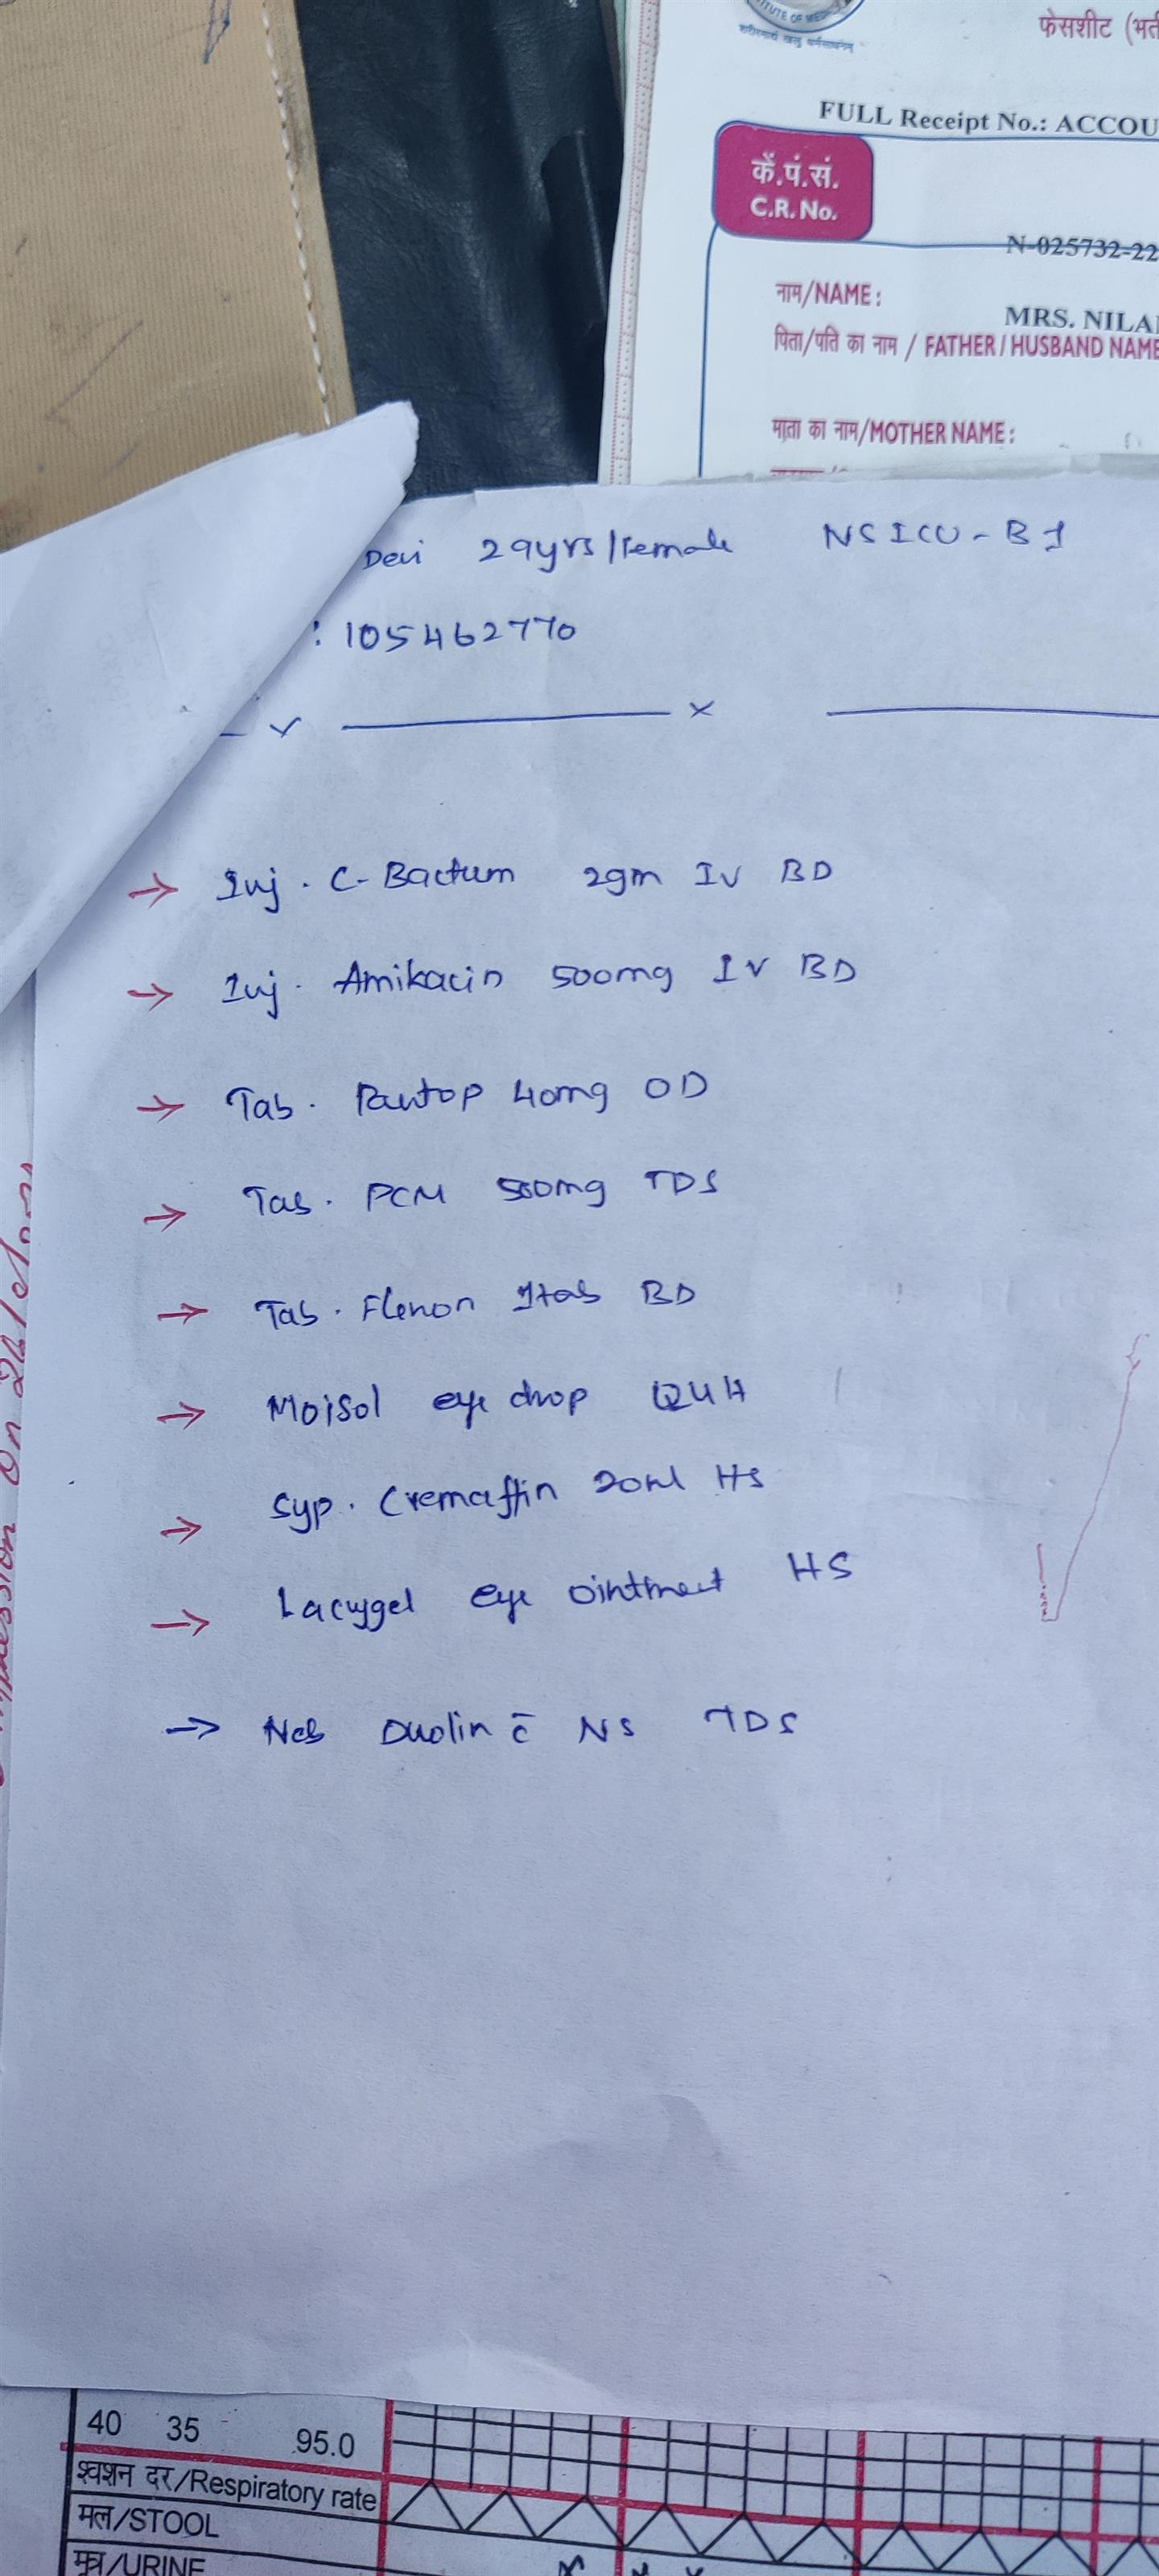 TUTE OF MED
फेसशीट (भर्त
FULL Receipt No.: ACCOU
कें.पं.सं.
C.R. No.
N-025732-22
नाम/NAME :
MRS. NILA
पिता/पति का नाम / FATHER / HUSBAND NAME
माता का नाम/MOTHER NAME :
Devi 29yrs/Female NSICU-B1
: 105462770
x
→ Inj. C-Bactum 2gm IV BD
→ Inj. Amikacin 500mg IV BD
→ Tab. Pantop 40mg OD
→ Tab. PCM 500mg TDS
→ Tab. Flenon 1tab BD
→ Moisol eye drop Q4H
→ Syp. Cremaffin 20ml HS
→ Lacrygel eye ointment HS
→ Neb Duolin c̄ NS TDS
on
40 35 95.0
श्वशन दर/Respiratory rate
मल/STOOL
मूत्र/URINE